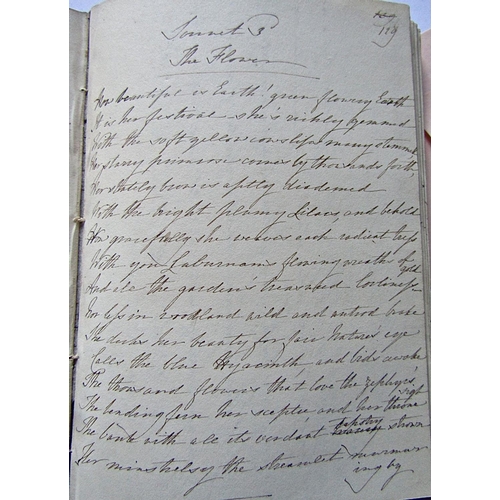 119
Sonnet 3
The Flower
How beautiful is Earth! green flowery Earth
It is her festival she's richly gemmed
With the soft yellow cowslip many stemmed
Her starry primrose comes by thousands forth
Her stately brow is aptly diademed
With the bright plumy Lilacs, and behold
How gracefully she weaves each radient tress
With yon Laburnam's flowing wreath of gold
And all the gardens treasured loveliness
Nor less in woodland wild and
She decks her beauty for fair Nature's eye
Calls the blue Hyacinth and bids awake
The thousand flowers that love the zephyr's sigh
The bending fern her sceptre and her throne
The bank with all its verdant tapestry strown
Her minstrelsy the streamlet murmur
ing by